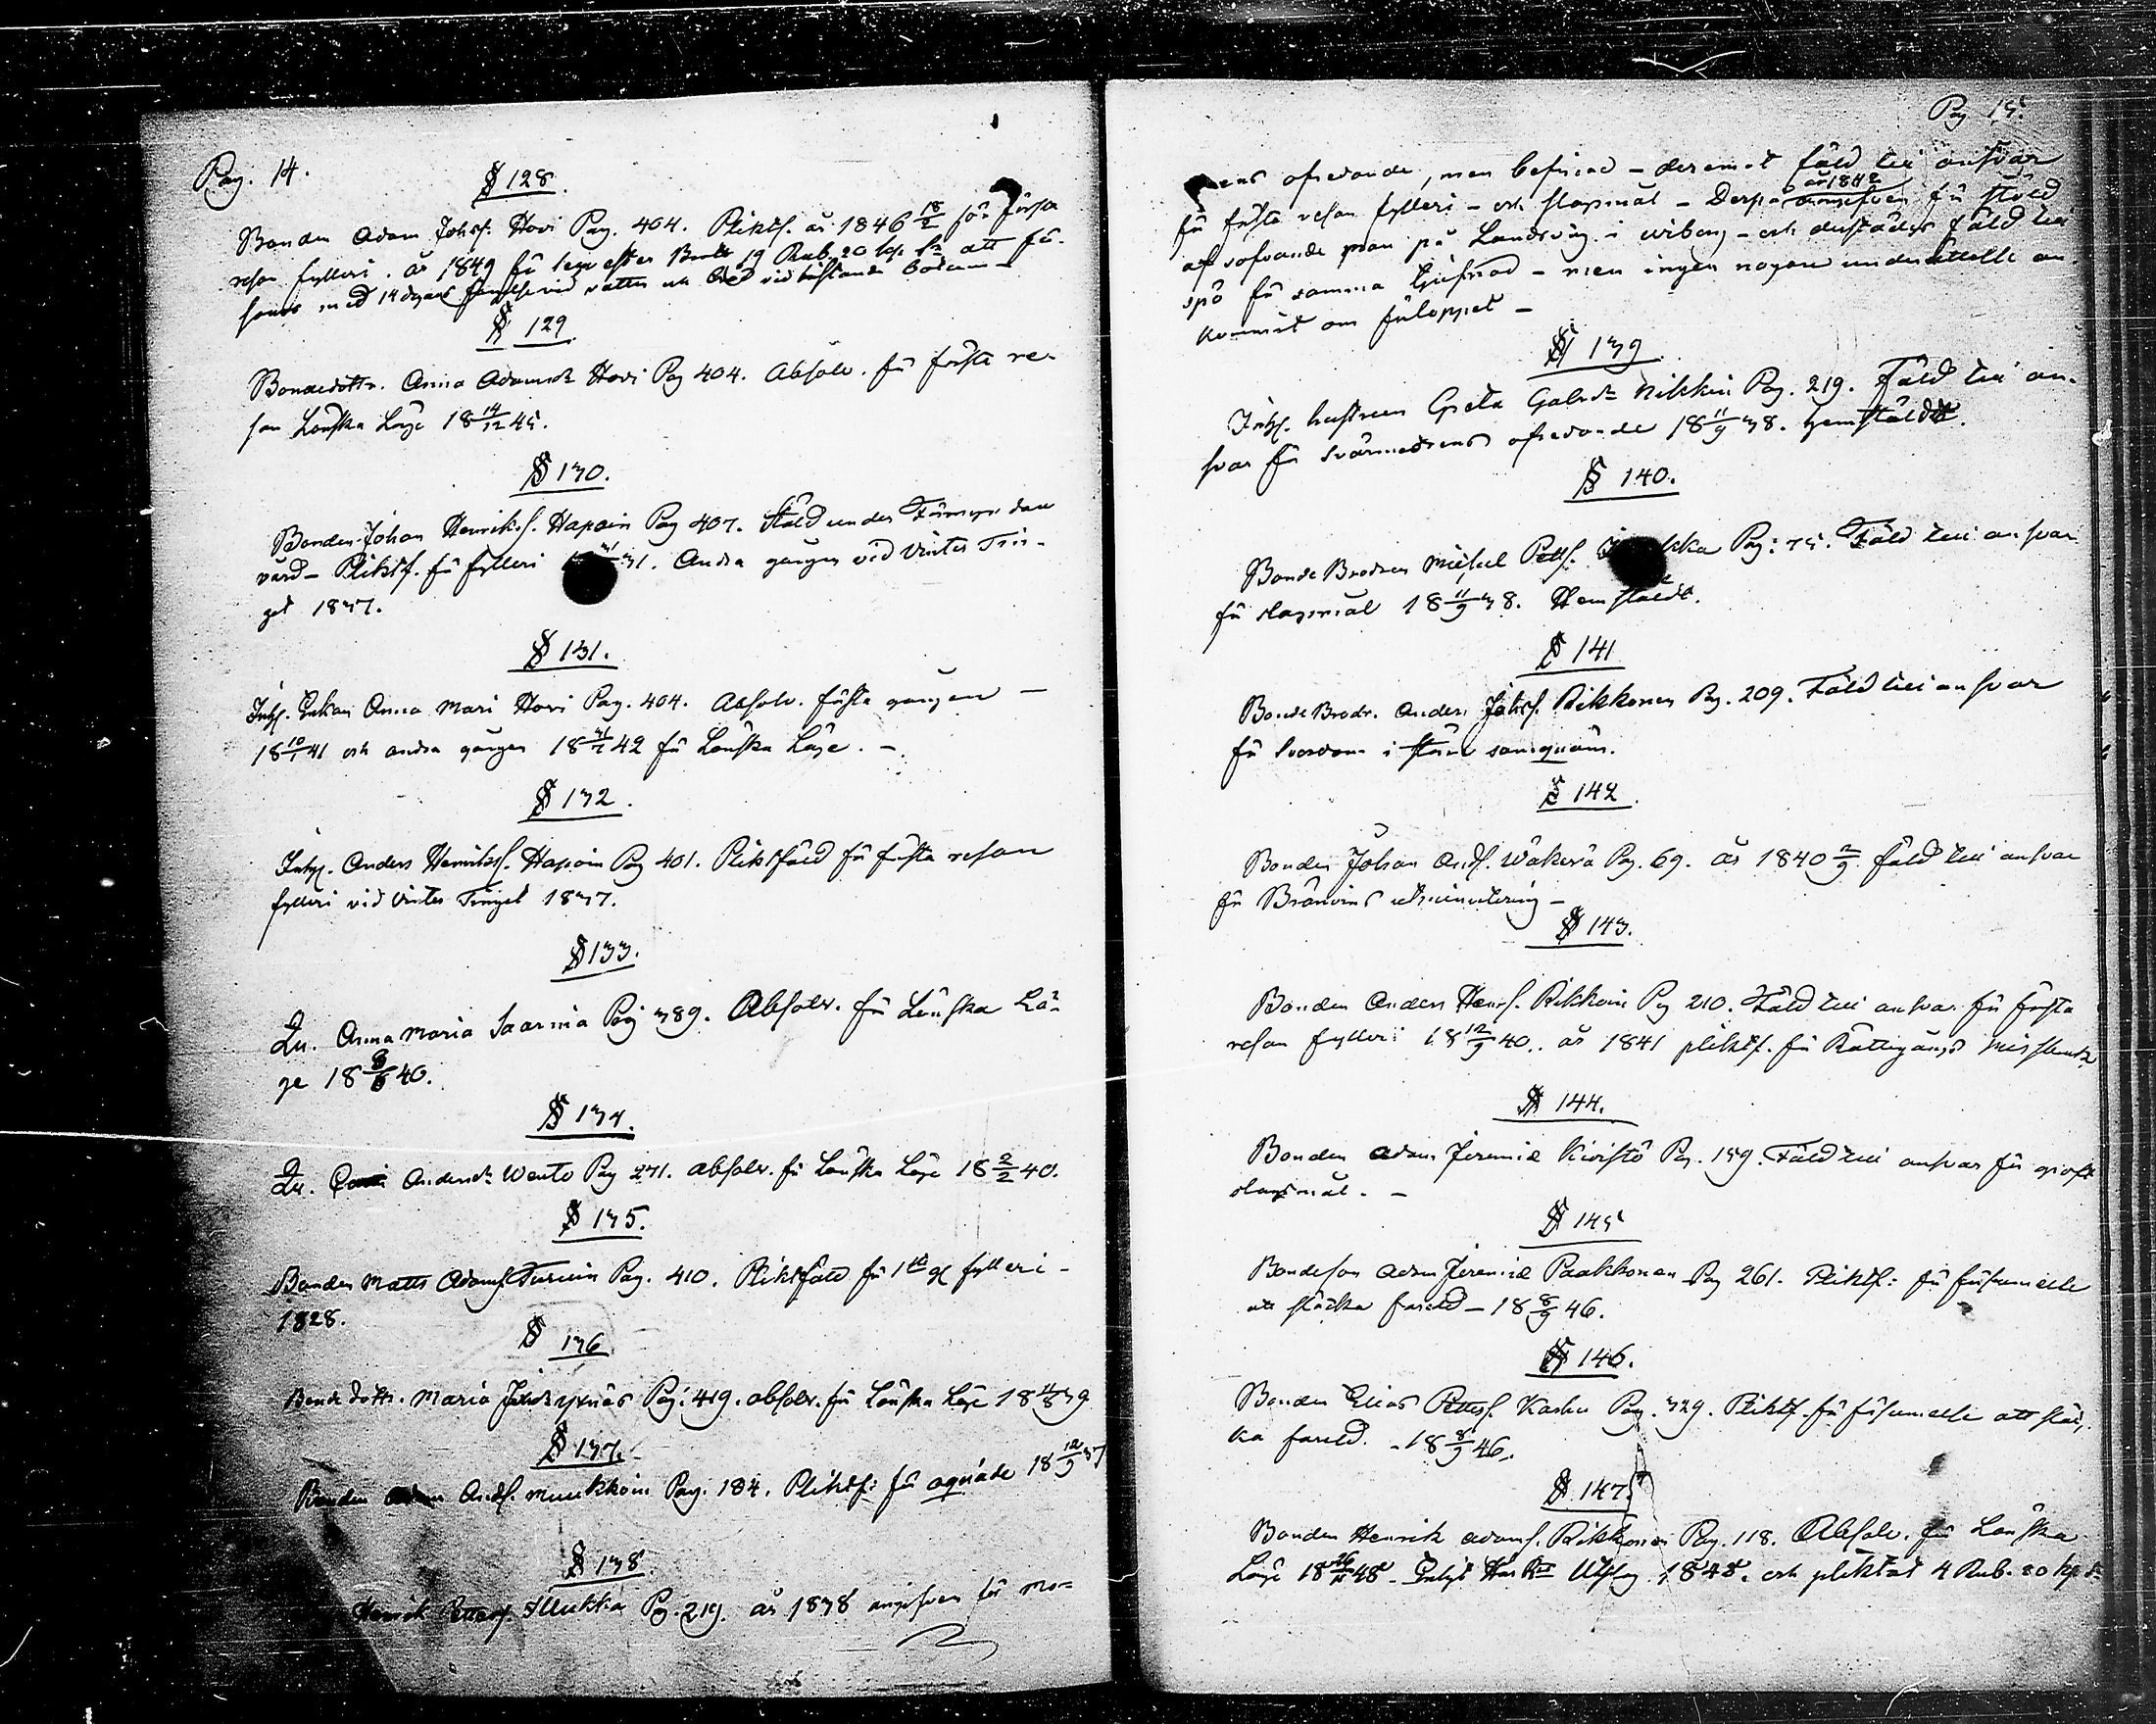 Pag. 14.
§ 128.
Bonden Adam Johsf. Hovi Pag. 404. Pliktf. år 1846 18/2 för första
resan fylleri. år 1849 för lego efter Brott 19 Rub. 20 kop. Sr att för-
sonas med 14 dygns fängelse vid vatten och bröd vid bristande botum
§ 129.
Bondedottr. Anna Adamsdr Hovi Pag 404. Absolv. för första re-
san Lönska Läge 18 14/12 45.
§ 130.
Bonden Johan Henriksf. Hapoin Pag 407. Stäld under Förmyndare
vård – Pliktf. för fylleri 31. Andra gången vid Vinter Tin-
get 1837.
§ 131.
Inhs. Enkan Anna Mari Hovi Pag. 404. Absolv. första gången –
18 10/1 41 och andra gången 18 42 för Lönska Läge. –
§ 132.
Inhs. Anders Henriksf. Hapoin Pag 401. Pliktfäld för första resan
fylleri vid Vinter Tinget 1837.
§ 133.
Qu. Anna Maria Saarnia Pag 389. Absolv. för Lönska Lä-
ge 18 40.
§ 134.
Qu. Andersdr Wento Pag 271. absolv. för Lönska Läge 18 2/2 40.
§ 135.
Bonden Matts Adamsf. Turuin Pag. 410. Pliktfäld för 1sta gg fylleri –
1828.
§ 136
Bonde dottr. Maria Pag. 419. absolv. för Lönska Läge 18 39
§ 137.
Bonden Andf. Muukkoin Pag. 184. Pliktf: för oqväde 18 12/9 37
§ 138.
Henrik Pettersf. Ilukka Pag. 219. år 1838 angifven för mo-
Pag 15.
drens ofredande, men befriad – deremot fäld till ansvar
för första resan fylleri – och slagsmål – Derpå år 1842 angifven för stöld
af sofvande man på Landsväg i Wiborg – och derstädes fäld till
spö för samma tjufnad – men ingen någon underrättelse an-
kommit om förloppet –
§ 139.
Inhs. hustrun Greta Gabrdr Nikkin Pag. 219. Fäld till an-
svar för Svärmodrens ofredande 18 11/9 38. Hemstäldt.
§ 140.
Bonde Brodren Michel Pettf. Pag: 75. Fäld till ansvar
för slagsmål 18 11/9 38. Hemstäldt.
§ 141
Bonde Brodr. Anders Johsf. Rikkonen Pag. 209. Fäld till ansvar
för Svordom i större samqväm.
§ 142.
Bonden Johan Andf. Wäkevä Pag. 69. år 1840 2/9 fäld till ansvar
för Bränvins utminutering –
§ 143.
Bonden Anders Henrsf. Rikkoin Pag 210. Fäld till ansvar för första
resan fylleri 18 12/9 40. år 1841 pliktf. för Rättegångs Missbruk
§ 144.
Bonden Adam Jeremiæ Kivistö Pag. 159. Fäld till ansvar för groft
slagsmål. –
§ 145
Bondeson Adam Jeremiæ Paakkonen Pag 261. Pliktf: för försummelse
att släcka fareld – 18 8/9 46.
§ 146.
Bonden Elias Pettersf. Kasku Pag. 329. Pliktf. för försummelse att släc-
ka fareld. – 18 8/9 46.
§ 147.
Bonden Henrik Adamsf. Rikkonen Pag. 118. Absolv. för Lönska
Läge 18 48 – Enligt Här Rts Utslag 1848. och pliktat 4 Rub. 80 kop. Sr